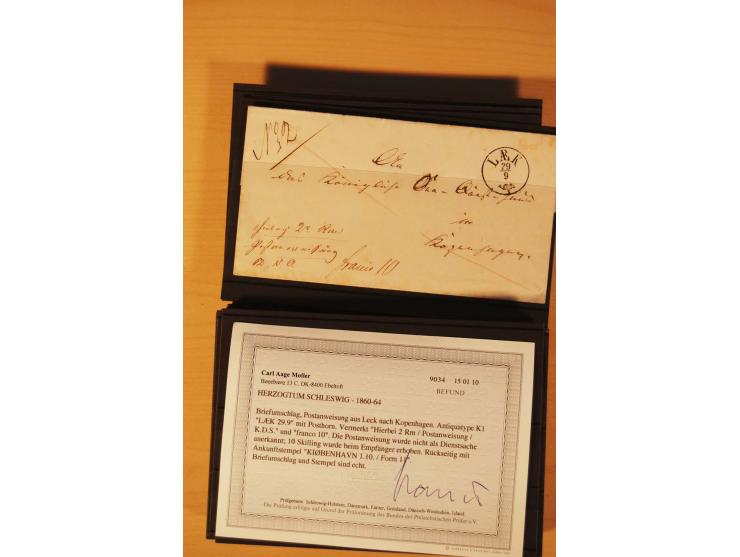 No 32
LÆK
29
9
Den
das Königliche
in
Postanweisung
franco 10
Carl Aage Møller
9034 15 01 10
DK-8400 Ebeltoft
BEFUND
HERZOGTUM SCHLESWIG - 1860-64
Briefumschlag, Postanweisung aus Leck nach Kopenhagen. Antiquatype K1
"LÆK 29.9" mit Posthorn. Vermerkt "Hierbei 2 Rm / Postanweisung /
K.D.S." und "franco 10". Die Postanweisung wurde nicht als Dienstsache
anerkannt; 10 Skilling wurde beim Empfänger erhoben. Rückseitig mit
Ankunftstempel "KIØBENHAVN 1.10. / Form 1".
Briefumschlag und Stempel sind echt.
Prüfgebiete: Schleswig-Holstein, Dänemark, Färöer, Grönland, Dänisch-Westindien, Island.
Die Prüfung erfolgte auf Grund der Prüfordnung des Bundes der Philatelistischen Prüfer e.V.